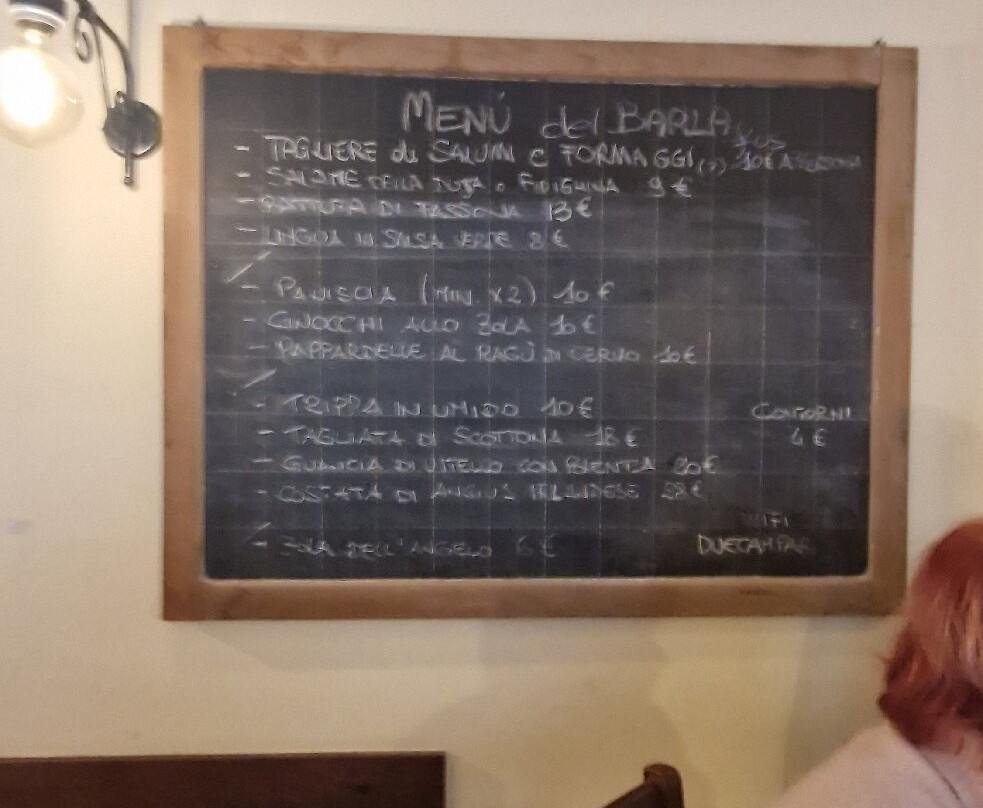 MENÚ del BARLA
- TAGLIERE di SALUMI e FORMAGGI 10€ A PERSONA
- SALAME DELLA DUJA o FIDIGHINA 9 €
- BATTUTA DI FASSONA 13 €
- LINGUA IN SALSA VERDE 8 €
- PANISCIA (MIN. x2) 10 €
- GNOCCHI ALLO ZOLA 10 €
- PAPPARDELLE AL RAGÙ DI CERVO 10€
- TRIPPA IN UMIDO 10 €
CONTORNI
- TAGLIATA DI SCOTTONA 18 €
4 €
- GUANCIA DI VITELLO CON POLENTA 20€
- COSTATA DI ANGUS IRLANDESE
WIFI
- ZOLA DELL'ANGELO 6 €